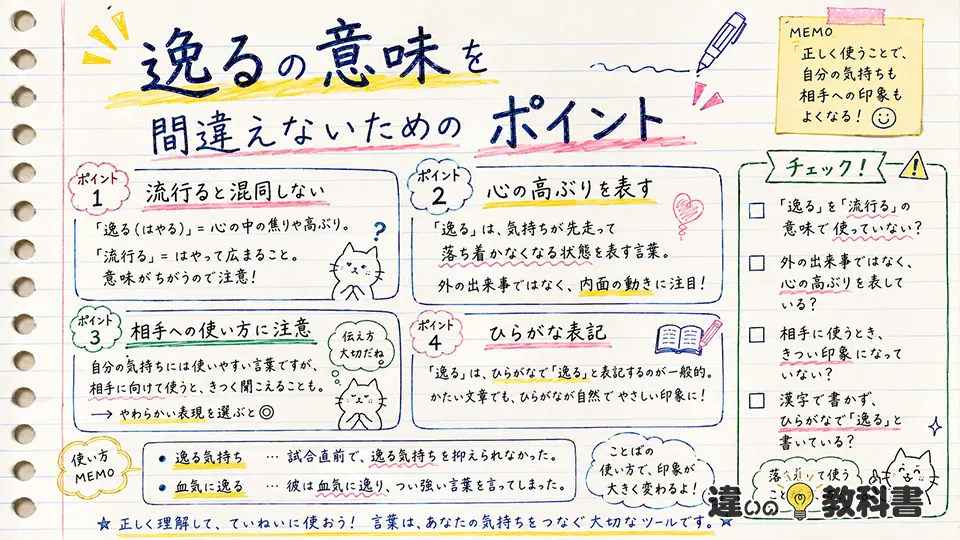 逸るの意味を
間違えないための ポイント
MEMO
「正しく使うことで、
自分の気持ちも
相手への印象も
よくなる!
ポイント
1
流行ると混同しない
「逸る(はやる)」=心の中の焦りや高ぶり。
「流行る」=はやって広まること。
意味がちがうので注意!
?
ポイント
2
心の高ぶりを表す
「逸る」は、気持ちが先走って
落ち着かなくなる状態を表す言葉。
外の出来事ではなく、内面の動きに注目!
ポイント
3
相手への使い方に注意
自分の気持ちには使いやすい言葉ですが、
相手に向けて使うと、きつく聞こえることも。
→ やわらかい表現を選ぶと◎
伝え方
大切だね
ポイント
4
ひらがな表記
「逸る」は、ひらがなで「逸る」と表記するのが一般的。
かたい文章でも、ひらがなが自然でやさしい印象に!
チェック!
!
□ 「逸る」を「流行る」の
意味で使っていない?
□ 外の出来事ではなく、
心の高ぶりを表して
いる?
□ 相手に使うとき、
きつい印象になって
いない?
□ 漢字で書かず、
ひらがなで「逸る」と
書いている?
使い方
MEMO
• 逸る気持ち … 試合直前で、逸る気持ちを抑えられなかった。
• 血気に逸る … 彼は血気に逸り、つい強い言葉を言ってしまった。
ことばの
使い方で、印象が
大きく変わるよ!
落ち着いて使う
こと
☆ 正しく理解して、ていねいに使おう! 言葉は、あなたの気持ちをつなぐ大切なツールです。★
違いの教科書